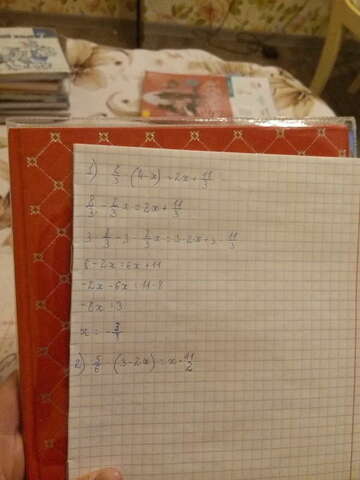 1) 2/3 · (4-x) = 2x + 11/3
8/3 - 2/3 x = 2x + 11/3
3 · 8/3 - 3 · 2/3 x = 3 · 2x + 3 · 11/3
8 - 2x = 6x + 11
-2x - 6x = 11 - 8
-8x = 3
x = -3/8
2) 5/6 · (3-2x) = x - 11/2